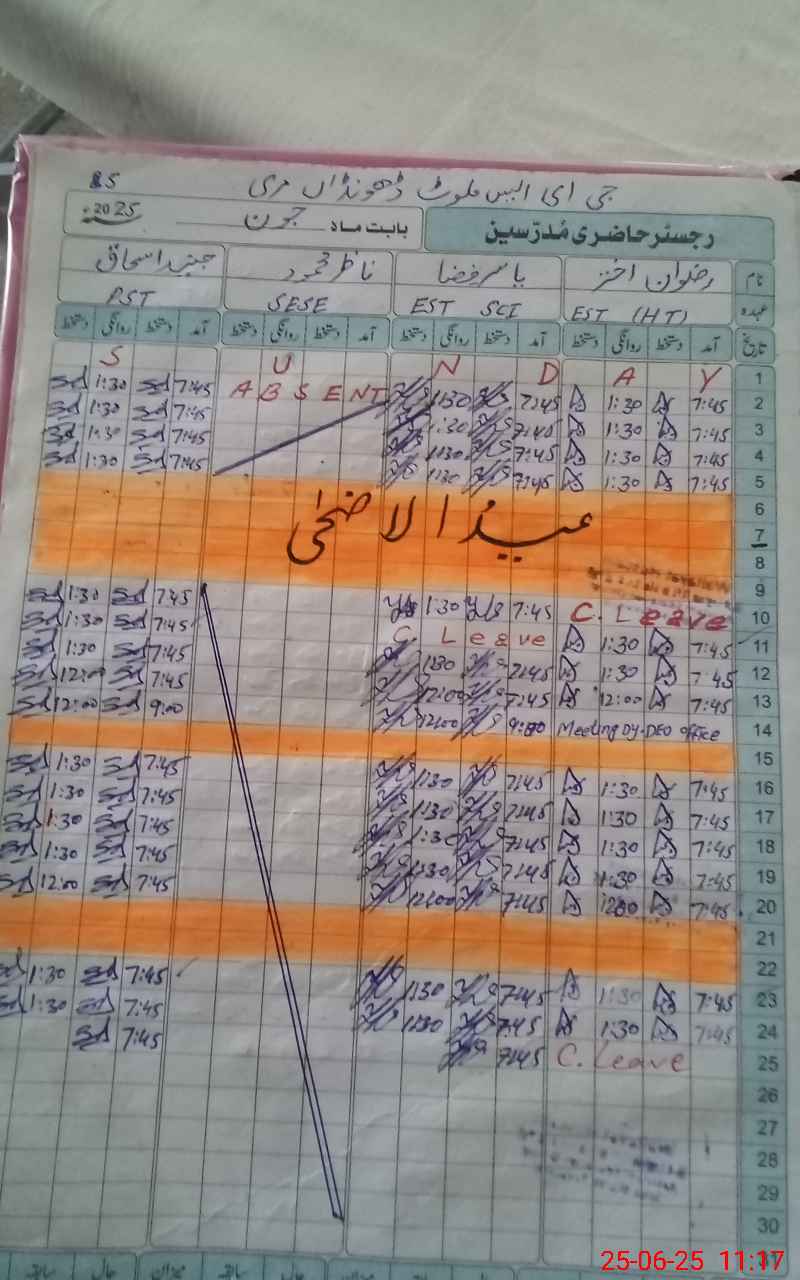 جی ای ایس ملوٹ ڈھونڈاں مری
رجسٹر حاضری مُدرّسین بابت ماہ جون 2025ء
نام رضوان اختر یاسر فضا ناظر محمود جنید اسحاق
عہدہ EST (HT) EST SCI SESE PST
تاریخ آمد دستخط روانگی دستخط آمد دستخط روانگی دستخط آمد دستخط روانگی دستخط آمد دستخط روانگی دستخط
S U N D A Y 1
1:30 7:45 A B S E N T 1:30 7:45 1:30 7:45 2
1:30 7:45 1:30 7:45 1:30 7:45 3
1:30 7:45 1:30 7:45 1:30 7:45 4
1:30 7:45 1:30 7:45 1:30 7:45 5
6
عیدُ الاضحٰی 7
8
9
1:30 7:45 1:30 7:45 C. Leave 10
1:30 7:45 C Leave 1:30 7:45 11
1:30 7:45 1:30 7:45 1:30 7:45 12
12:00 7:45 12:00 7:45 12:00 7:45 13
12:00 9:00 12:00 9:00 Meeting Dy. DEO office 14
15
1:30 7:45 1:30 7:45 1:30 7:45 16
1:30 7:45 1:30 7:45 1:30 7:45 17
1:30 7:45 1:30 7:45 1:30 7:45 18
1:30 7:45 1:30 7:45 1:30 7:45 19
12:00 7:45 12:00 7:45 12:00 7:45 20
21
22
1:30 7:45 1:30 7:45 1:30 7:45 23
1:30 7:45 1:30 7:45 1:30 7:45 24
7:45 7:45 C. Leave 25
26
27
28
29
30
25-06-25 11:17